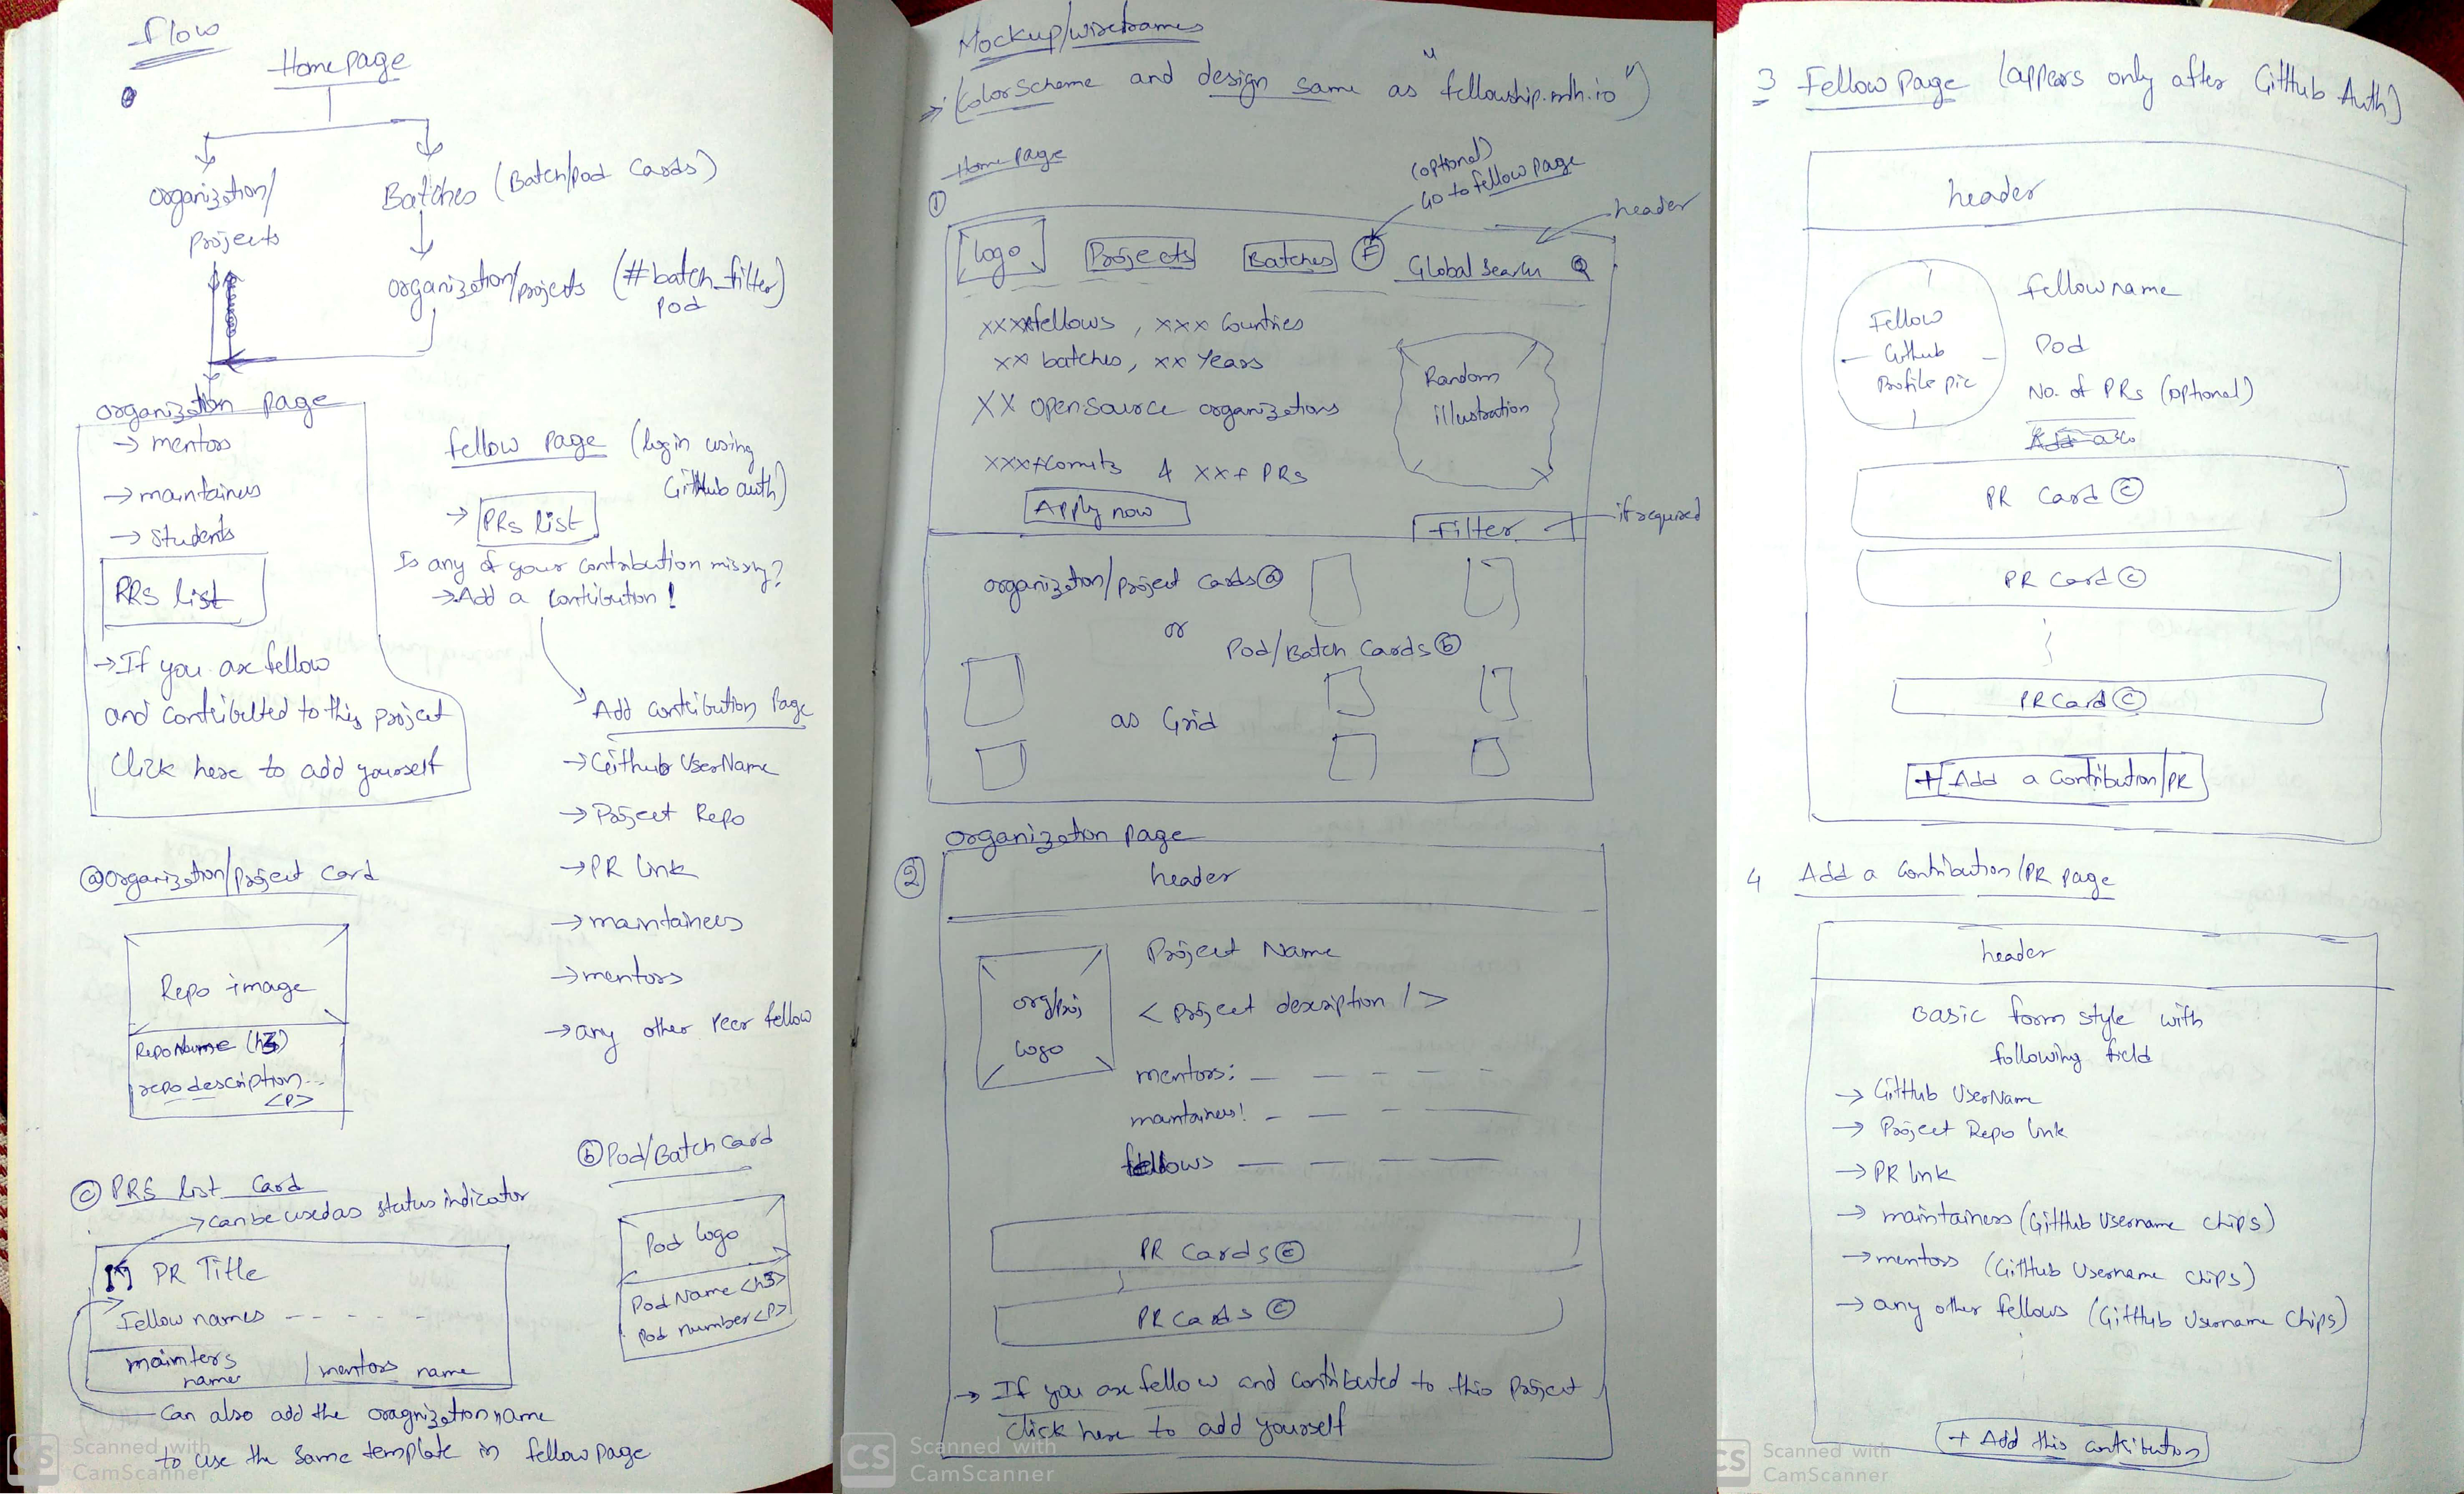 Flow
Homepage
organization/
projects
Batches (Batch/pod Cards)
organization/projects (#batch_filter)
pod
organization page
→ mentors
→ maintainers
→ students
PRs list
→ If you are fellow
and contributed to this project
Click here to add yourself
fellow page (login using
GitHub auth)
→ PRs list
Is any of your contribution missing?
→ Add a contribution!
Add contribution Page
→ Github UserName
→ Project Repo
→ PR link
→ maintainers
→ mentors
→ any other Peer fellow
ⓐ organization/project card
Repo image
RepoName (h3)
repo description...
<P>
ⓑ Pod/Batch card
Pod logo
Pod Name <h3>
Pod number <P>
ⓒ PRs list card
→ can be used as status indicator
PR Title
Fellow names - - - -
mainters
name
mentors name
can also add the oragnization name
to use the same template in fellow page
CS Scanned with
CamScanner
Mockup/wireframes
→ (Color Scheme and design same as "fellowship.mlh.io")
Home page
(optional)
Go to fellow page
①
header
logo
Projects
Batches
F
Global Search
xxxx fellows, xxx Countries
xx batches, xx Years
XX opensource organizations
xxx+ Comits & xx+ PRs
Random
illustration
Apply now
Filter
if required
organization/project cards ⓐ
or
Pod/Batch Cards ⓑ
as Grid
organization page
②
header
org/proj
logo
Project Name
<project description />
mentors: - - - - -
maintainers: - - - -
fellows - - - -
PR Cards ⓒ
PR Cards ⓒ
→ If you are fellow and contributed to this project
click here to add yourself
CS Scanned with
CamScanner
3 Fellow Page (appears only after GitHub Auth)
header
Fellow
Github
Profile pic
fellow name
Pod
No. of PRs (optional)
PR Card ⓒ
PR Card ⓒ
PR Card ⓒ
+ Add a Contribution/PR
4 Add a contribution/PR page
header
Basic form style with
following field
→ GitHub UserName
→ Project Repo link
→ PR link
→ maintainers (GitHub Username chips)
→ mentors (GitHub Username chips)
→ any other fellows (GitHub Username chips)
+ Add this contribution
CS Scanned with
CamScanner